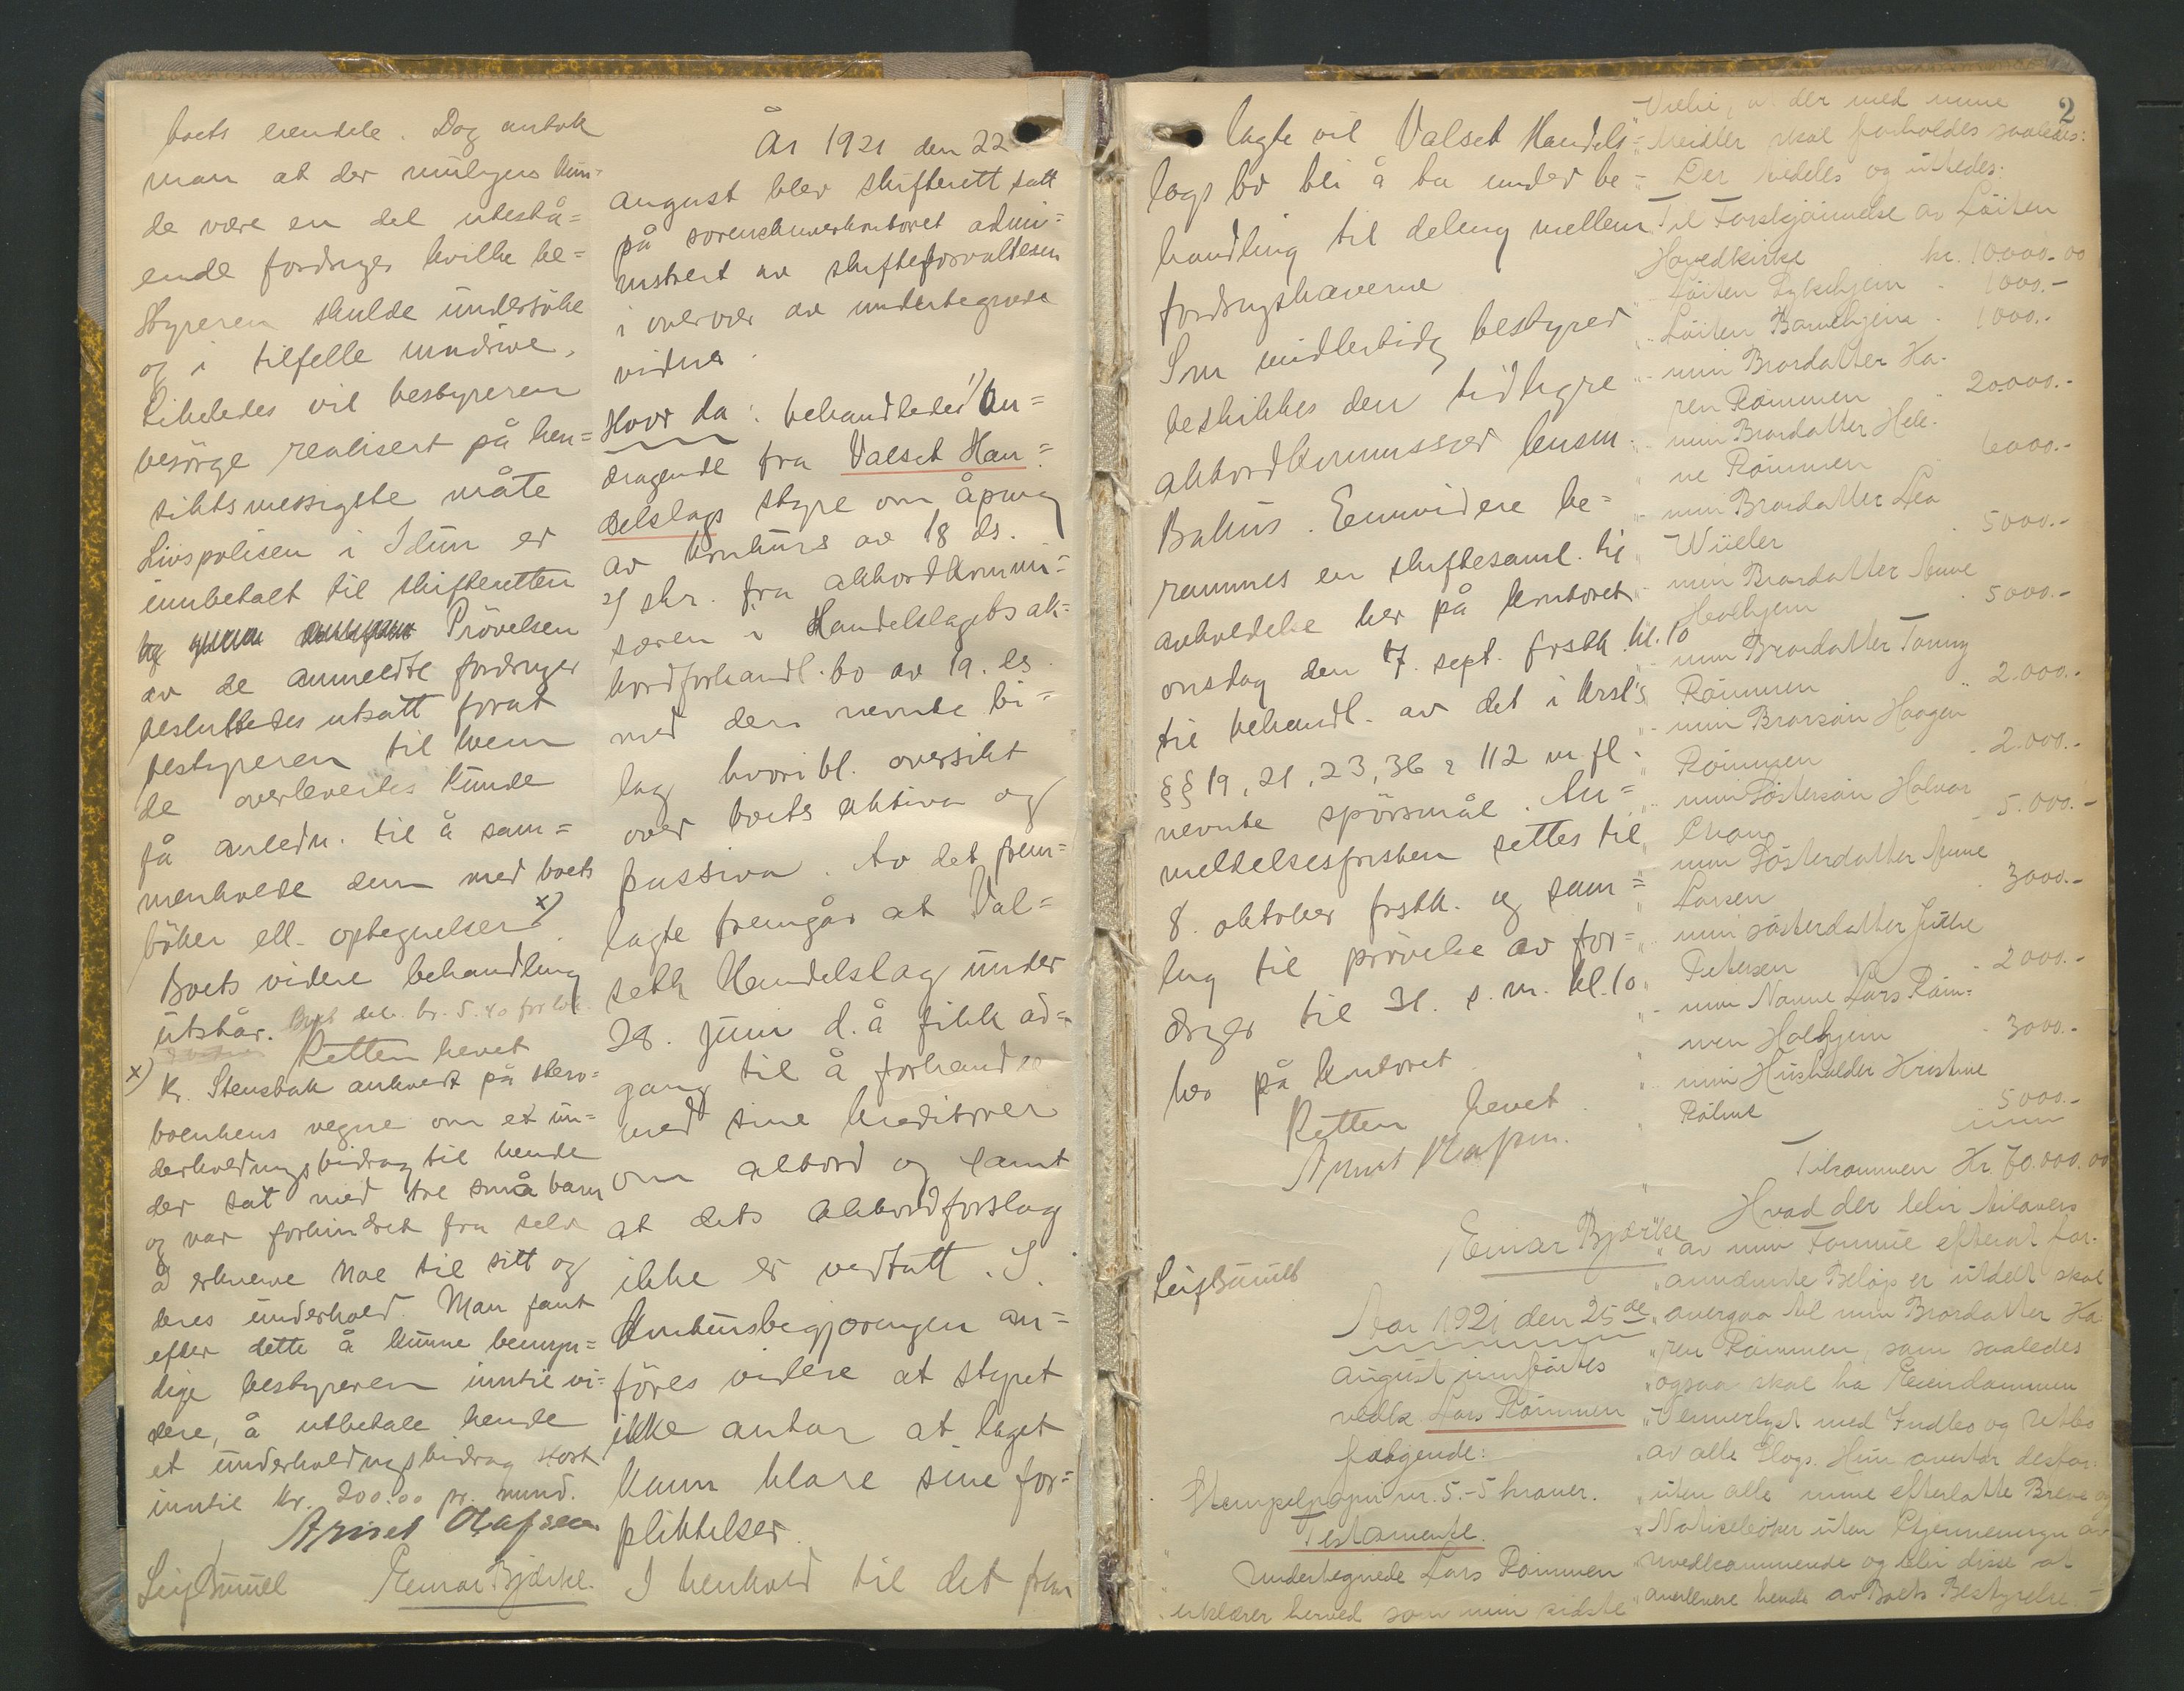 boets eiendele. Dog antok
man at der muligens kun=
de være en del utestå=
ende fordringer hvilke be=
styreren skulde undersöke
og i tilfelle inndrive.
Likeledes vil bestyreren
besörge realisert på hen=
siktsmessigste måte
Livspolisen i Idun er
innbetalt til skifteretten
Prövelsen
av de anmeldte fordringer
besluttedes utsatt forat
bestyreren til hvem
de overleveredes kunde
få anledn. til å sam=
menholde dem med boets
böker ell. optegnelser x)
Boets videre behandling
utstår. Boet deb. kr. 5.40 for
Retten hevet
x) Kr. Stensbak anholdt på skers=
boenkens vegne om et un=
derholdningsbidrag til hende
der sat med tre små barn
og var forhindret fra selv
å erhverve noe til sitt og
deres underhold. Man fant
efter dette å kunne bemyn=
dige bestyreren inntil vi=
dere, å utbetale hende
et underholdningsbidrag stort
inntil kr. 200.00 pr. mnd.
Arnet Olafsen
Leif Smull Einar Bjærke.
År 1921 den 22
august blev skifterett satt
på sorenskriverkontoret admi=
nistrert av skifteforvalteren
i overvær av undertegnede
vidner.
Hvor da: behandledes 1) An=
dragende fra Valset Han=
delslags styre om åpning
av konkurs av 18 ds.
2) skr. fra akkordkommi=
særen i Handelslagets ak=
kordforhandl.bo av 19. ds.
med dern nevnte bi=
lag hvori bl. oversikt
over boets aktiva og
passiva. Av det frem=
lagte fremgår at Val=
seth Handelslag under
28. juni d.å fikk ad=
gang til å forhandle
med sine kreditorer
om akkord og samt
at dets akkordforslag
ikke er vedtatt. I
konkursbegjæringen an=
föres videre at styret
ikke antar at laget
kann klare sine for=
pliktelser.
I henhold til det frem
2
lagte vil Valset Handels=
lags bo bli å ta under be=
handling til deling mellem
fordringshaverne
Som midlertidig bestyrer
beskikkes den tidligre
akkordkommissær lensm.
Bakus. Eennvidere be=
rammes en skiftesaml. til
avholdelse her på kontoret
onsdag den 7. sept. frstk. kl. 10
til behandl. av det i krsl's
§§ 19, 21, 23, 36 & 112 m. fl.
nevnte spörsmål. An=
meldelsesfristen settes til
8. oktober frstk. og sam=
ling til prövelse av for=
dringer til 31. s. m. kl. 10
her på kontoret.
Retten hevet.
Arnet Olafsen.
Einar Bjærke
Leif Smull
Aar 1921 den 25de
august innförtes
vedk Lars Römmen
fölgende:
Stempelpapir nr. 5.-5 kroner.
Testamente.
Undertegnede Lars Römmen
erklærer herved som min sidste
Vilie, at der med mine
Meidler skal forholdes saaledes:
Der uddeles og utredes:
Til Forskjönnelse av Löiten
Hovedkirke kr. 10000.00
Löiten Sykehjem - 1000.-
Löiten Barnehjem - 1000.-
min Brordatter Ka-
ren Römmen 20000.-
min Brordatter Hele-
ne Römmen 6000.-
min Brordatter Lea
Wüller 5000.-
min Brordatter Anne
Hoelhjem 5000.-
min Brordatter Tonny
Römmen 2.000.-
min Brorsön Haagen
Römmen 2.000.-
min Söstersön Halvor
Chang 5.000.-
min Sösterdatter Anne
Larsen 3000.-
min sösterdatter Julie
Petersen 2000.-
min Navne Lars Röm=
men Hoelhjem 3000.-
min Husholder Kristine
Rölne 5000.-
Tilsammen Kr. 70.000.00
Hvad der blir tilovers
av min Formue efterat for-
annævnte Belöp er utdelt skal
overgaa til min Brordatter Ka-
ren Römmen, som saaledes
ogsaa skal ha Eiendommen
Vennerlyst med Indbo og Utbo
av alle Slags. Hun overtar desfor-
uten alle mine efterlatte Breve og
Notisebøker uten Gjennemsyn av
uvedkommende og blir disse at
overlevere hende av Boets Bestyrelse.